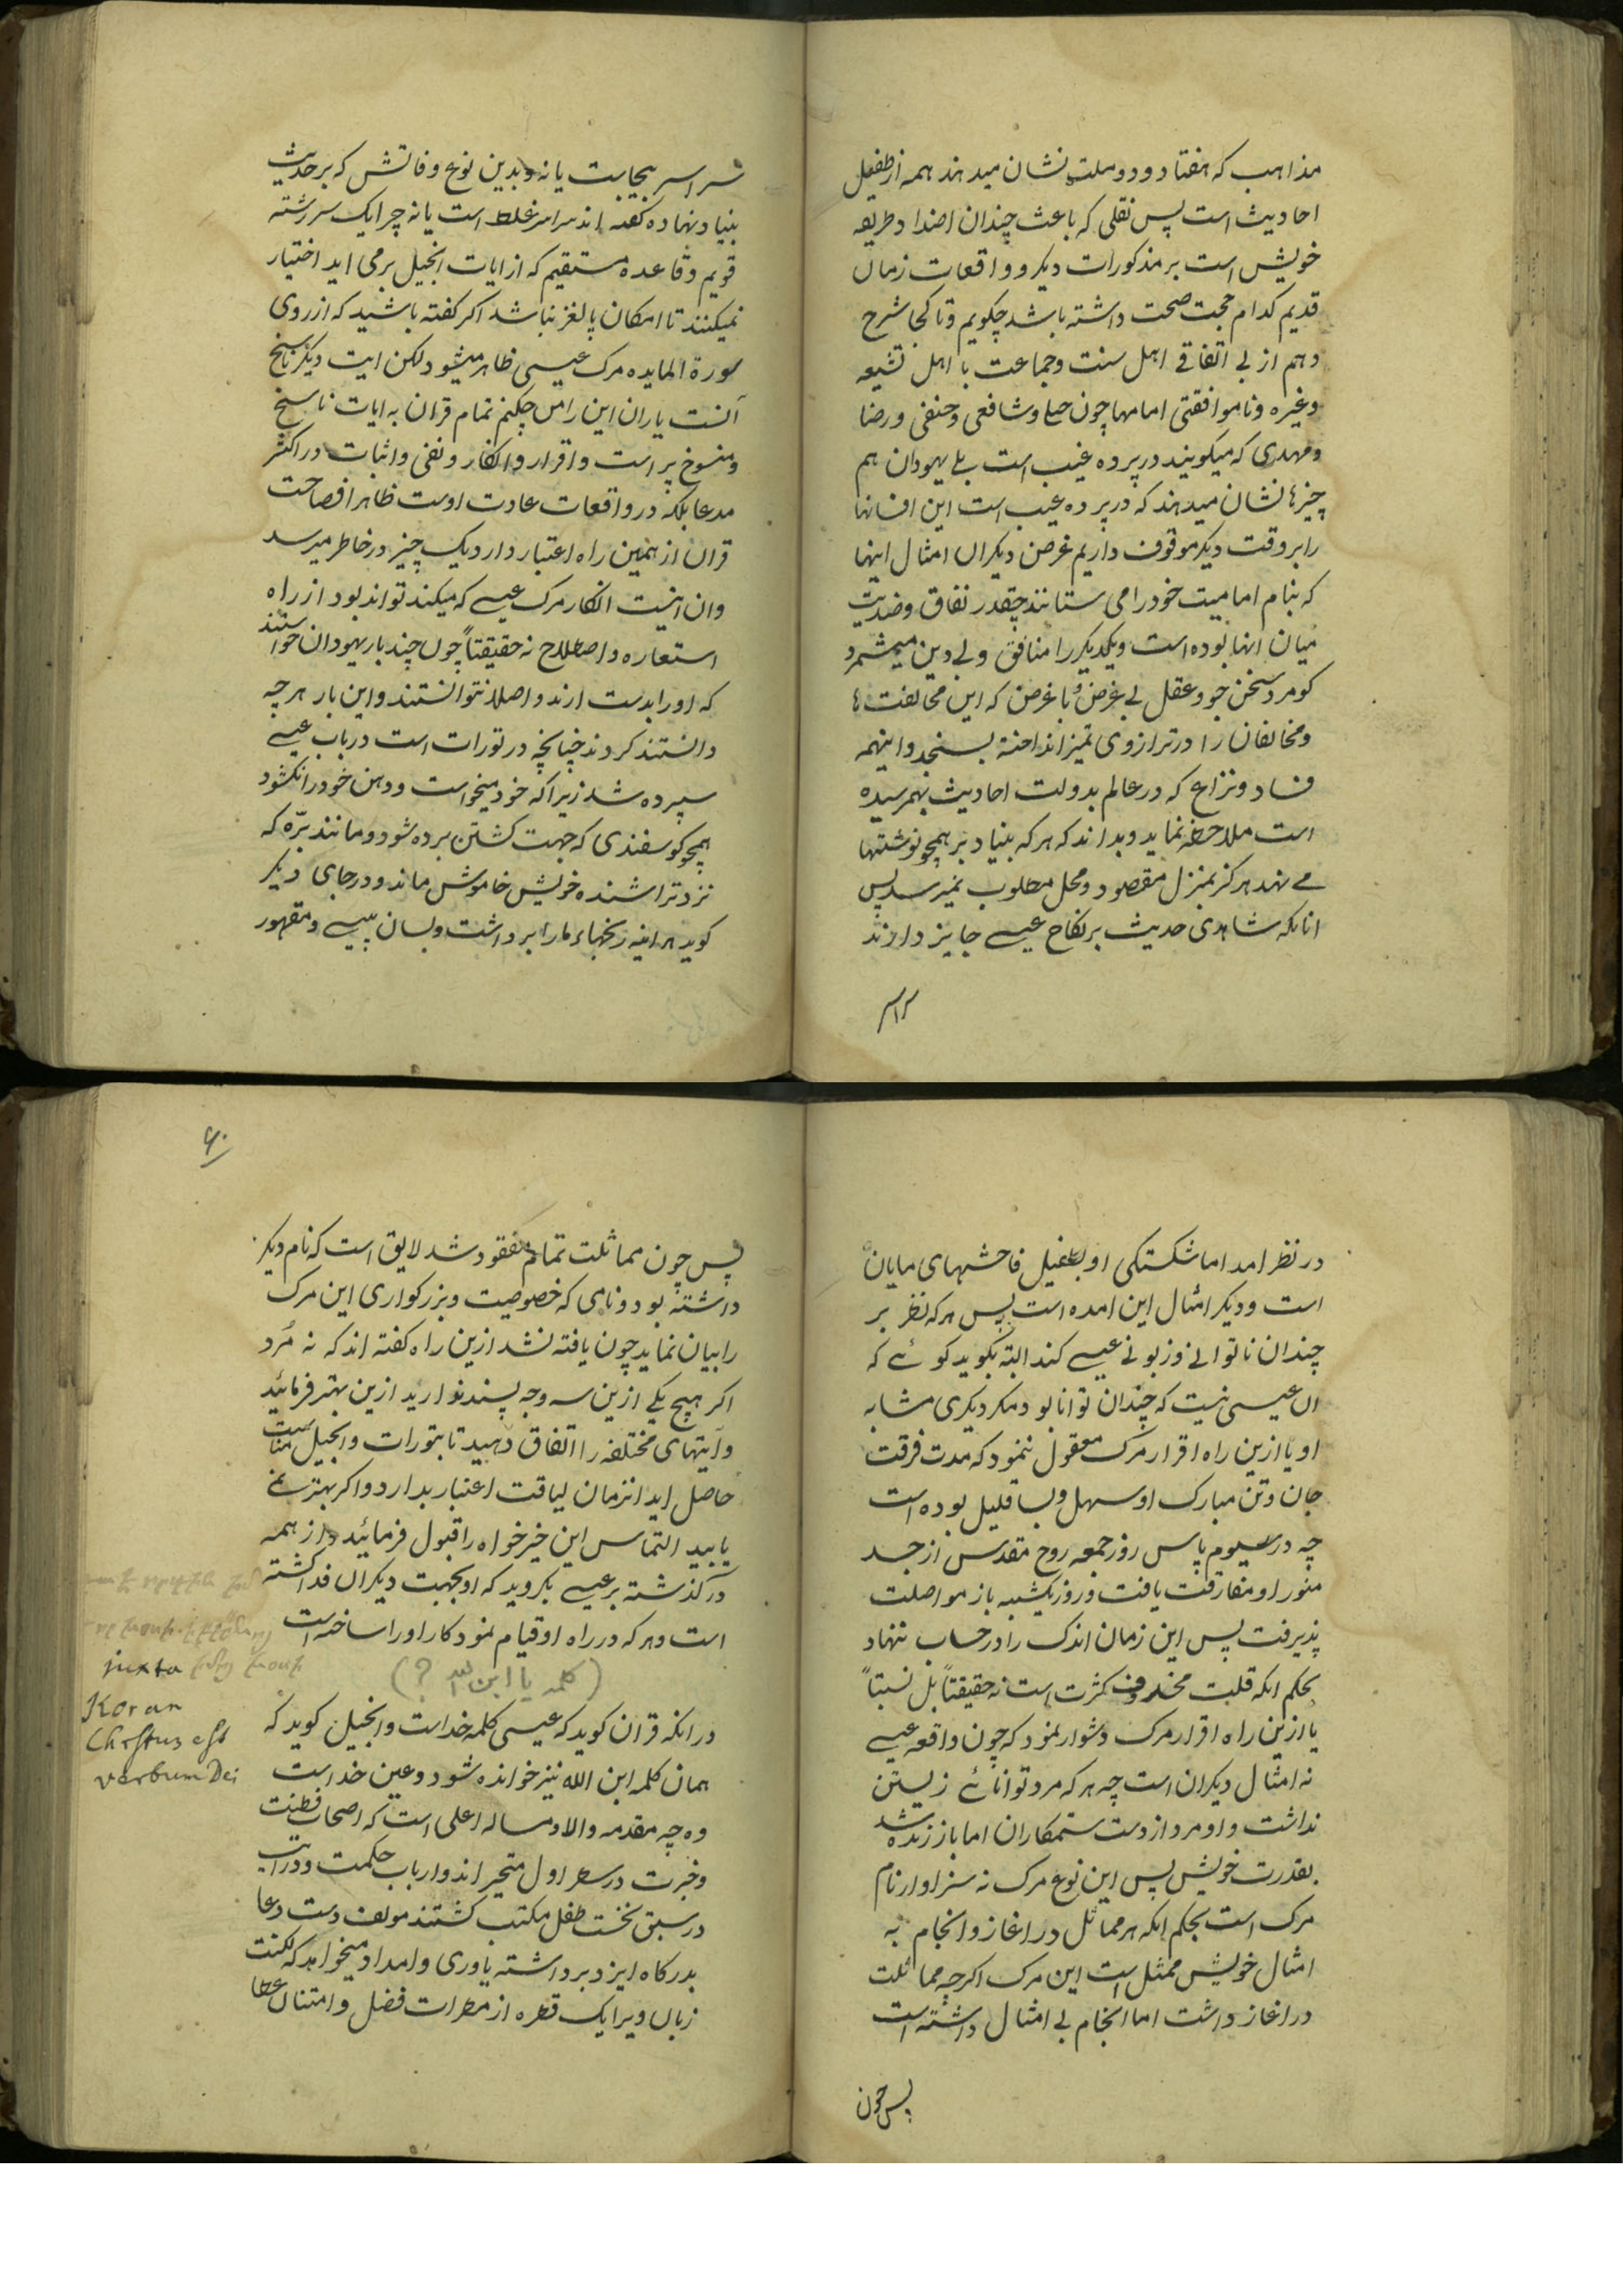 مذاهب که هفتاد و دو ملت نشان میدهند همه از طفیل
احادیث است پس نقلی که باعث چندان اضداد طریقه
خویش است بر مذکورات دیکر و واقعات زمان
قدیم کدام حجت صحت داشته باشد چکویم و تا کجا شرح
دهم از بی اتفاقی اهل سنت و جماعت با اهل تشیعه
و غیره و ناموافقتی امامها چون و شافعی و حنفی و رضا
و مهدی که میکویند در پرده غیب است بلی یهودان هم
چیزها نشان میدهند که در پرده غیب است این افسانها
را بر وقت دیکر موقوف داریم غرض دیکران امثال اینها
که بنام امامیت خود را می ستانند چقدر نفاق و ضدیت
میان انها بوده است و یکدیکر را منافق و بی دین میشمرد
کو مرد سخن جو و عقل بی غرض و با غرض که این مخالفت ها
و مخالفان را در ترازوی تمیز انداخته بسنجد و اینهمه
فساد و نزاع که در عالم بدولت احادیث بهمرسیده
است ملاحظه نماید و بداند که هر که بنیاد بر همچو نوشتها
می نهد هرکز بمنزل مقصود و محل مطلوب نمیرسد پس
انانکه شاهدی حدیث بر نکاح عیسی جایز دارند
سراسر
سراسر بیجابت یا نه و بدین نوع وفاتش که بر حدیث
بنیاد نهاده کفته اند سراسر غلط است یا نه چرا یک سررشته
قویم و قاعده مستقیم که از ایات انجیل بر می اید اختیار
نمیکنند تا امکان پالغز نباشد اکر کفته باشید که از روی
سورة المایده مرک عیسی ظاهر میشود لکن ایت دیکر ناسخ
آنست یاران این را من چکنم تمام قران به ایات ناسخ
و منسوخ پر است و اقرار و انکار و نفی و اثبات در اکثر
مدعا بلکه در واقعات عادت اوست ظاهرا فصاحت
قران از همین راه اعتبار دارد یک چیز در خاطر میرسد
و ان اینست انکار مرک عیسی که میکند تواند بود از راه
استعاره و اصطلاح نه حقیقتاً چون چند بار یهودان خواستند
که او را بدست ارند و اصلا نتوانستند و این بار هر چه
دانستند کردند چنانچه در تورات است در باب عیسی
سپرده شد زیرا که خود میخواست و دهن خود را نکشود
همچو کوسفندی که جهت کشتن برده شود و مانند برّه که
نزد تراشنده خویش خاموش ماند و در جای دیکر
کوید هراینه رنجهاء ما را برداشت و بسان پیسی و مقهور
در نظر امد اما شکستکی او بطفیل فاحشهای مایان
است و دیکر امثال این امده است پس هر که نظر بر
چندان ناتوانی و زبونی عیسی کند البته بکوید کوئے که
ان عیسی نیست که چندان توانا بود مکر دیکری مشابه
او یا ازین راه اقرار مرک معقول ننمود که مدت فرقت
جان و تن مبارک او سهل و بسا قلیل بوده است
چه در سیوم پاس روز جمعه روح مقدس از جسد
منور او مفارقت یافت و روز یکشنبه باز مواصلت
پذیرفت پس این زمان اندک را در حساب ننهاد
بحکم انکه قلیت کثرت است نه حقیقتاً بل نسبتاً
یا ازین راه اقرار مرک دشوار نمود که چون واقعه عیسی
نه امثال دیکران است چه هر که مرد توانائے زیستن
نداشت و او مرد از دست ستمکاران اما باز زنده شد
بقدرت خویش پس این نوع مرک نه سزاوار نام
مرک است بحکم انکه هر مماثل در اغاز و انجام به
امثال خویش ممثل است این مرک اکرچه مماثلت
در اغاز داشت اما انجام بی امثال داشته است
پس چون
۶۰
پس چون مماثلت تمام مفقود شد لایق است که نام دیکر
داشته بود و نامی که خصوصیت و بزرکواری این مرک
را بیان نماید چون یافته نشد ازین راه کفته اند که نه مُرد
اکر هیچ یکی ازین سه وجه پسند نوارید ازین بهتر فرمائید
و آیتهای مختلفه را اتفاق دهید تا بتورات و انجیل مناسبت
حاصل اید انزمان لیاقت اعتبار بدارد و اکر بهتر نمی
یابید التماس این خیرخواه را قبول فرمائید و از همه
درکذشته بر عیسی بکروید که او بجهت دیکران فدا کشته
است و هر که در راه او قیام نمود کار او را ساخته است
(کلمه یا ابن الله ؟)
در انکه قران کوید که عیسی کلمه خداست و انجیل کوید که
همان کلمه ابن الله نیز خوانده شود و عین خداست
وه چه مقدمه والا و مساله اعلی است که اصحاب فطنت
و خبرت در سطر اول متحیر اند و ارباب حکمت و درایت
در سبق نخست طفل مکتب کشتند مولف دست دعا
بدرکاه ایزد برداشته یاوری و امداد میخواهد که لکنت
زبان ویرا یک قطره از مطرات فضل و امتنان عطا
juxta
Koran
Christus est
verbum Dei